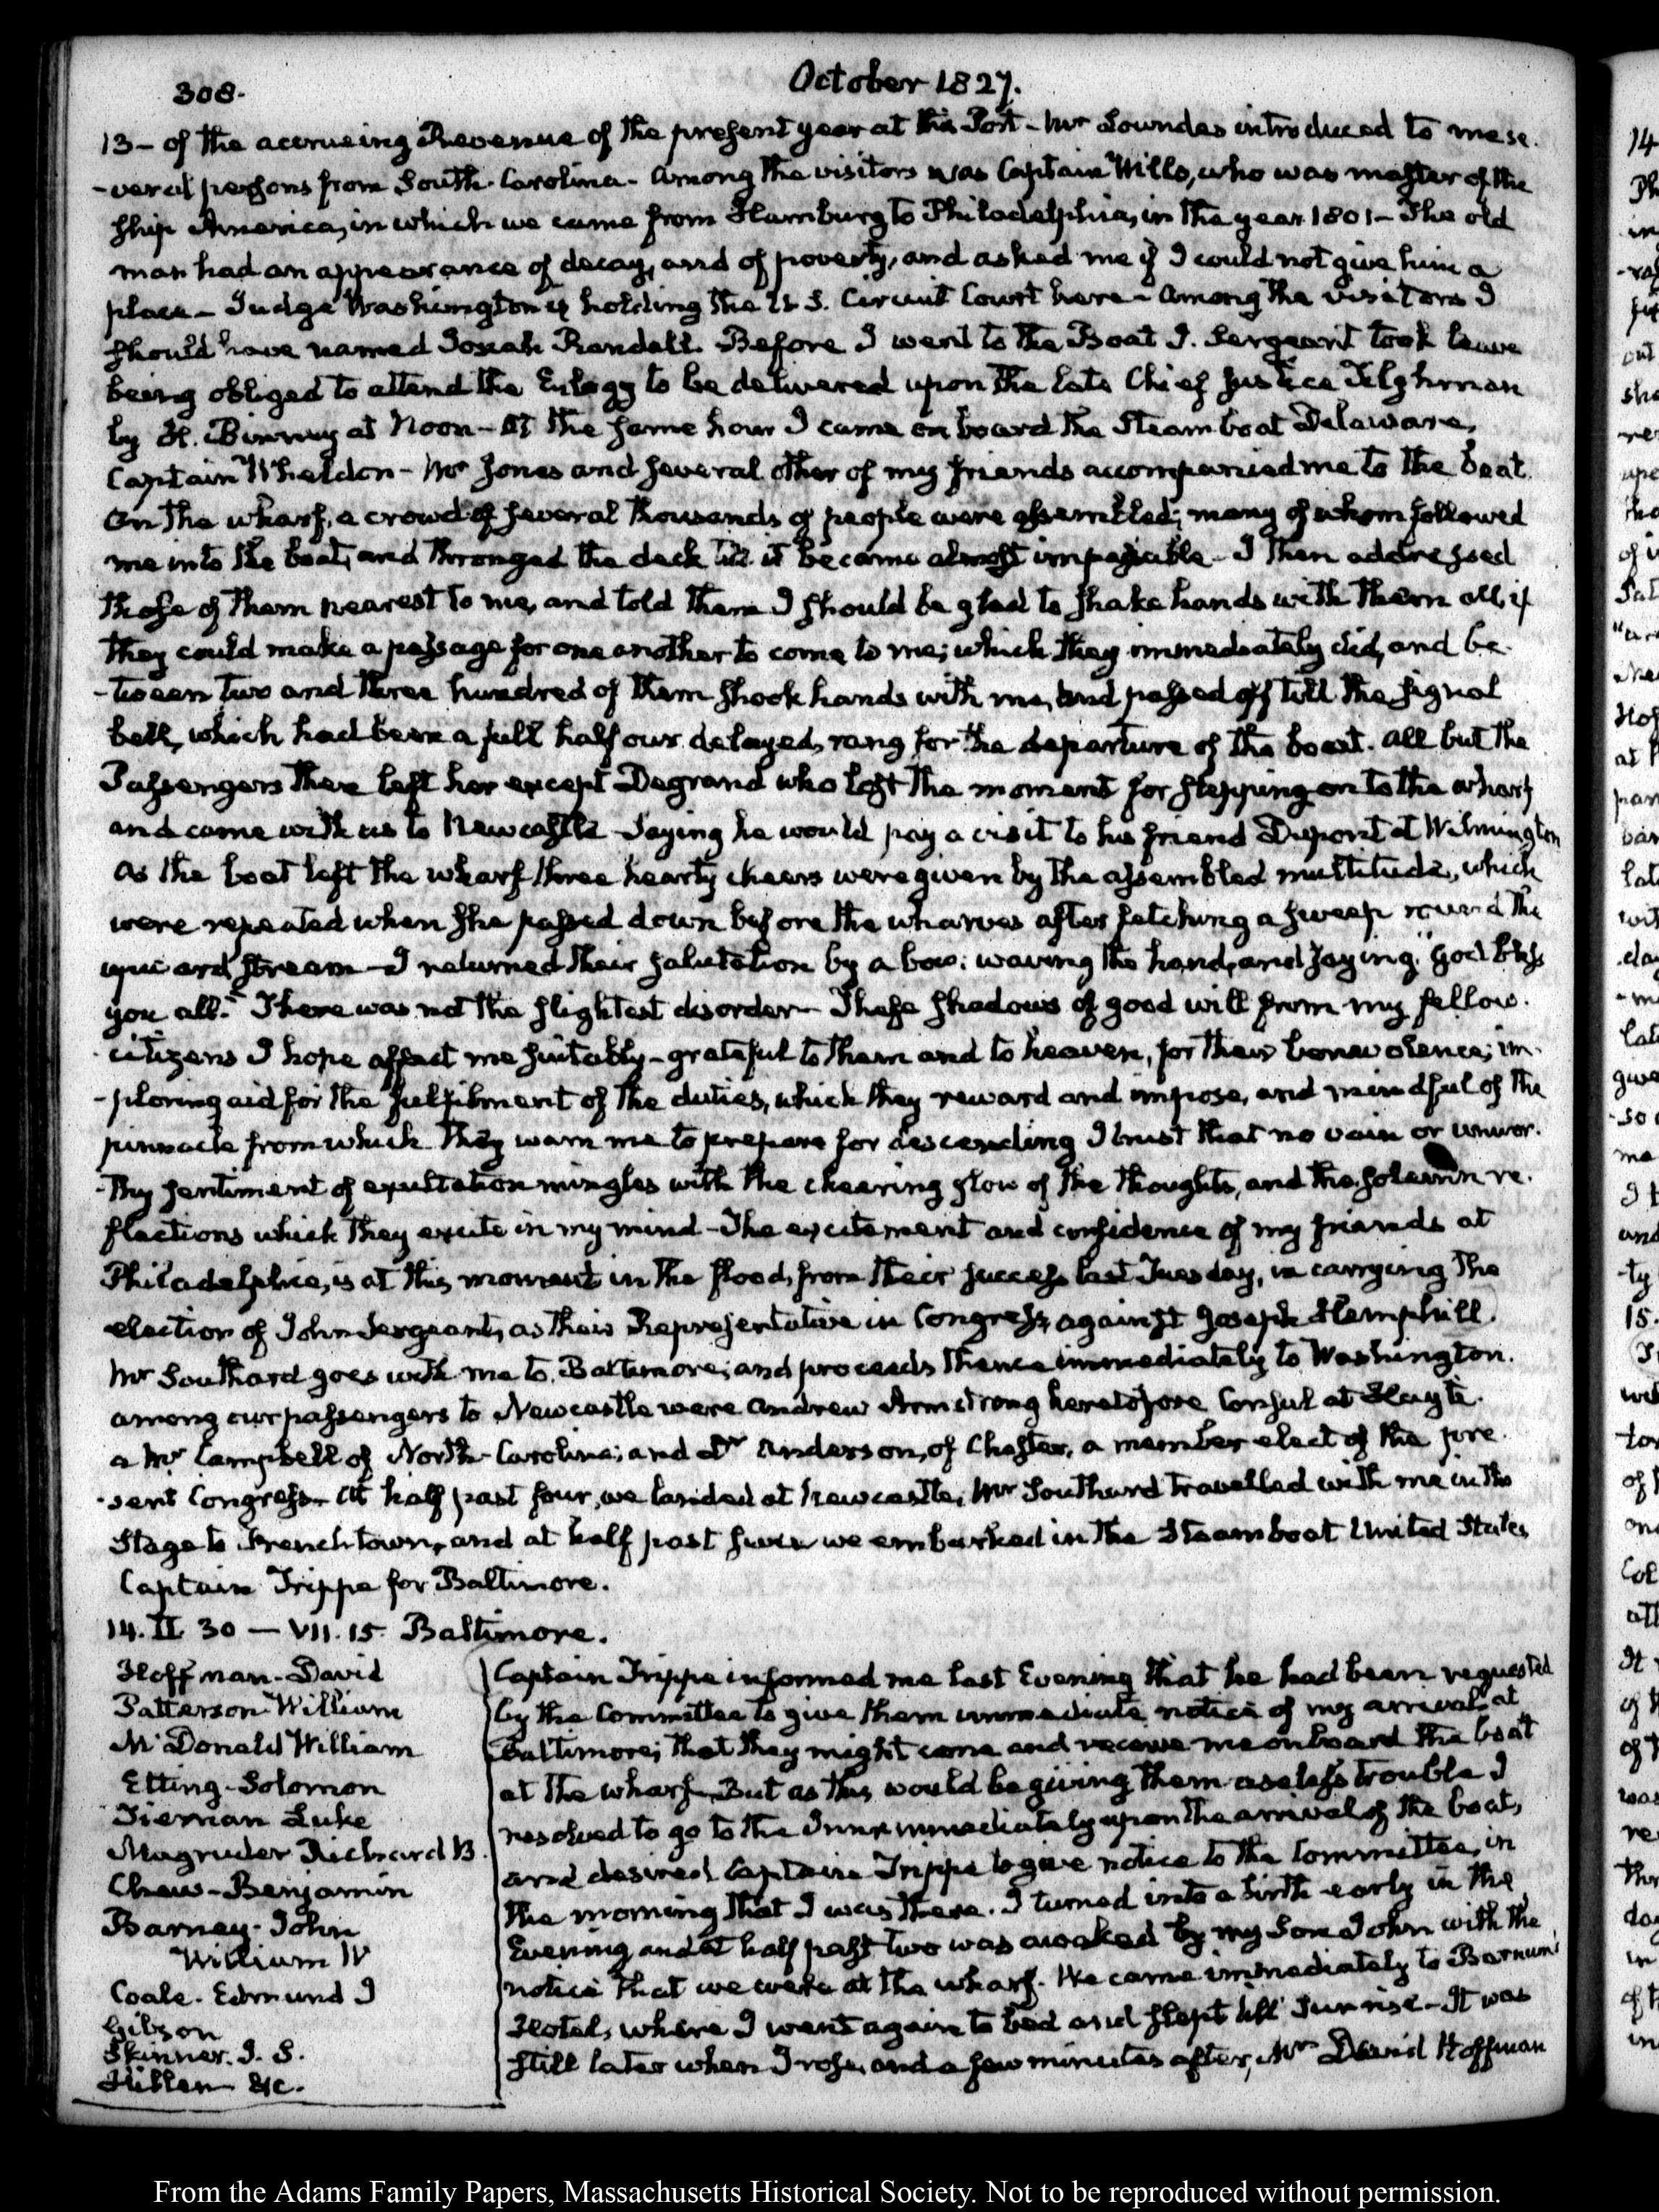 308.
October 1827.
13- of the accrueing Revenue of the present year at this Port - Mr Lowndes introduced to me se-
-veral persons from South-Carolina - Among the visitors was Captain Wills, who was master of the
ship America, in which we came from Hamburg to Philadelphia, in the year 1801 - The old
man had an appearance of decay, and of poverty, and asked me if I could not give him a
place - Judge Washington is holding the U. S. Circuit Court here - Among the visitors I
should have named Josiah Randall. Before I went to the Boat J. Sergeant took leave
being obliged to attend the Eulogy to be delivered upon the late Chief Justice Tilghman
by H. Binney at Noon - At the same hour I came on board the Steam boat Delaware,
Captain Wheldon - Mr Jones and several other of my friends accompanied me to the boat.
On the wharf, a crowd of several thousands of people were assembled; many of whom followed
me into the boat, and thronged the deck till it became almost impassable - I then addressed
those of them nearest to me, and told them I should be glad to shake hands with them all, if
they could make a passage for one another to come to me; which they immediately did, and be-
-tween two and three hundred of them shook hands with me, and passed off till the signal
bell, which had been a full half our delayed, rang for the departure of the boat. All but the
Passengers then left her except Degrand who lost the moment for stepping on to the wharf
and came with us to Newcastle - Saying he would pay a visit to his friend Dupont at Wilmington
As the boat left the wharf three hearty cheers were given by the assembled multitude, which
were repeated when she passed down before the wharves after fetching a sweep round the
upward stream - I returned their salutation by a bow: waving the hand, and saying "God bless
you all." There was not the slightest disorder - These shadows of good will from my fellow-
citizens I hope affect me suitably - grateful to them and to heaven, for their benevolence; im-
-ploring aid for the fulfilment of the duties, which they reward and impose, and mindful of the
pinnacle from which they warn me to prepare for descending I trust that no vain or unwor-
-thy sentiment of exultation mingles with the cheering glow of the thoughts, and the solemn re-
flections which they excite in my mind - The excitement and confidence of my friends at
Philadelphia, is at this moment in the flood, from their success last Tuesday, in carrying the
election of John Sergeant, as their Representative in Congress, against Joseph Hemphill.
Mr Southard goes with me to Baltimore; and proceeds thence immediately to Washington.
among our passengers to Newcastle were Andrew Armstrong heretofore Consul at Hayti.
a Mr Campbell of North-Carolina; and Dr Anderson, of Chester, a member elect of the pre-
-sent Congress - At half past four, we landed at Newcastle, Mr Southard travelled with me in the
Stage to Frenchtown, and at half past seven we embarked in the Steam boat United States
Captain Trippe for Baltimore.
14. II. 30 - VII. 15. Baltimore.
Hoffman - David
Patterson William
McDonald William
Etting - Solomon
Tiernan Luke
Magruder Richard B.
Chew - Benjamin
Barney - John
William W
Coale. Edmund J
Gibson
Skinner. J. S.
Hillen &c.
Captain Trippe informed me last Evening that he had been requested
by the Committee to give them immediate notice of my arrival at
Baltimore; that they might come and receive me on board the boat
at the wharf. But as this would be giving them useless trouble I
resolved to go to the Inn immediately upon the arrival of the boat,
and desired Captain Trippe to give notice to the Committee, in
the morning that I was there. I turned into a birth early in the
Evening and at half past two was awaked by my Son John with the
notice that we were at the wharf. We came immediately to Barnum's
Hotel, where I went again to bed and slept till Sun rise - It was
still later when I rose, and a few minutes after, Mr David Hoffman
From the Adams Family Papers, Massachusetts Historical Society. Not to be reproduced without permission.